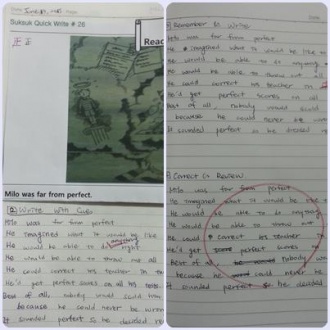 Suksuk Quick Write # 26
正 正
Read
Milo was far from perfect.
② Write with Cues
Milo was far from perfect
He imagined what it would be like
He would be able to do anything right
He would be able to throw out all
He could correct his teacher in
He'd get perfect scores on all his tests.
Best of all, nobody would
because he could never be wrong
It sounded perfect so he decided
Remember & Write
Milo was far from perfect
He imagined what it would be like to
He would be able to do anything
He would be able to throw out all
He could correct his teacher in
He'd get perfect scores on all
Best of all, nobody would
because he could never be
It sounded perfect so he decided
Correct & Review
Milo was far from perfect
He imagined what it would be like
He would be able to do anything
He would be able to throw out
He could correct his teacher
He'd get perfect scores
Best of all nobody
because he could never be
It sounded perfect so he decided